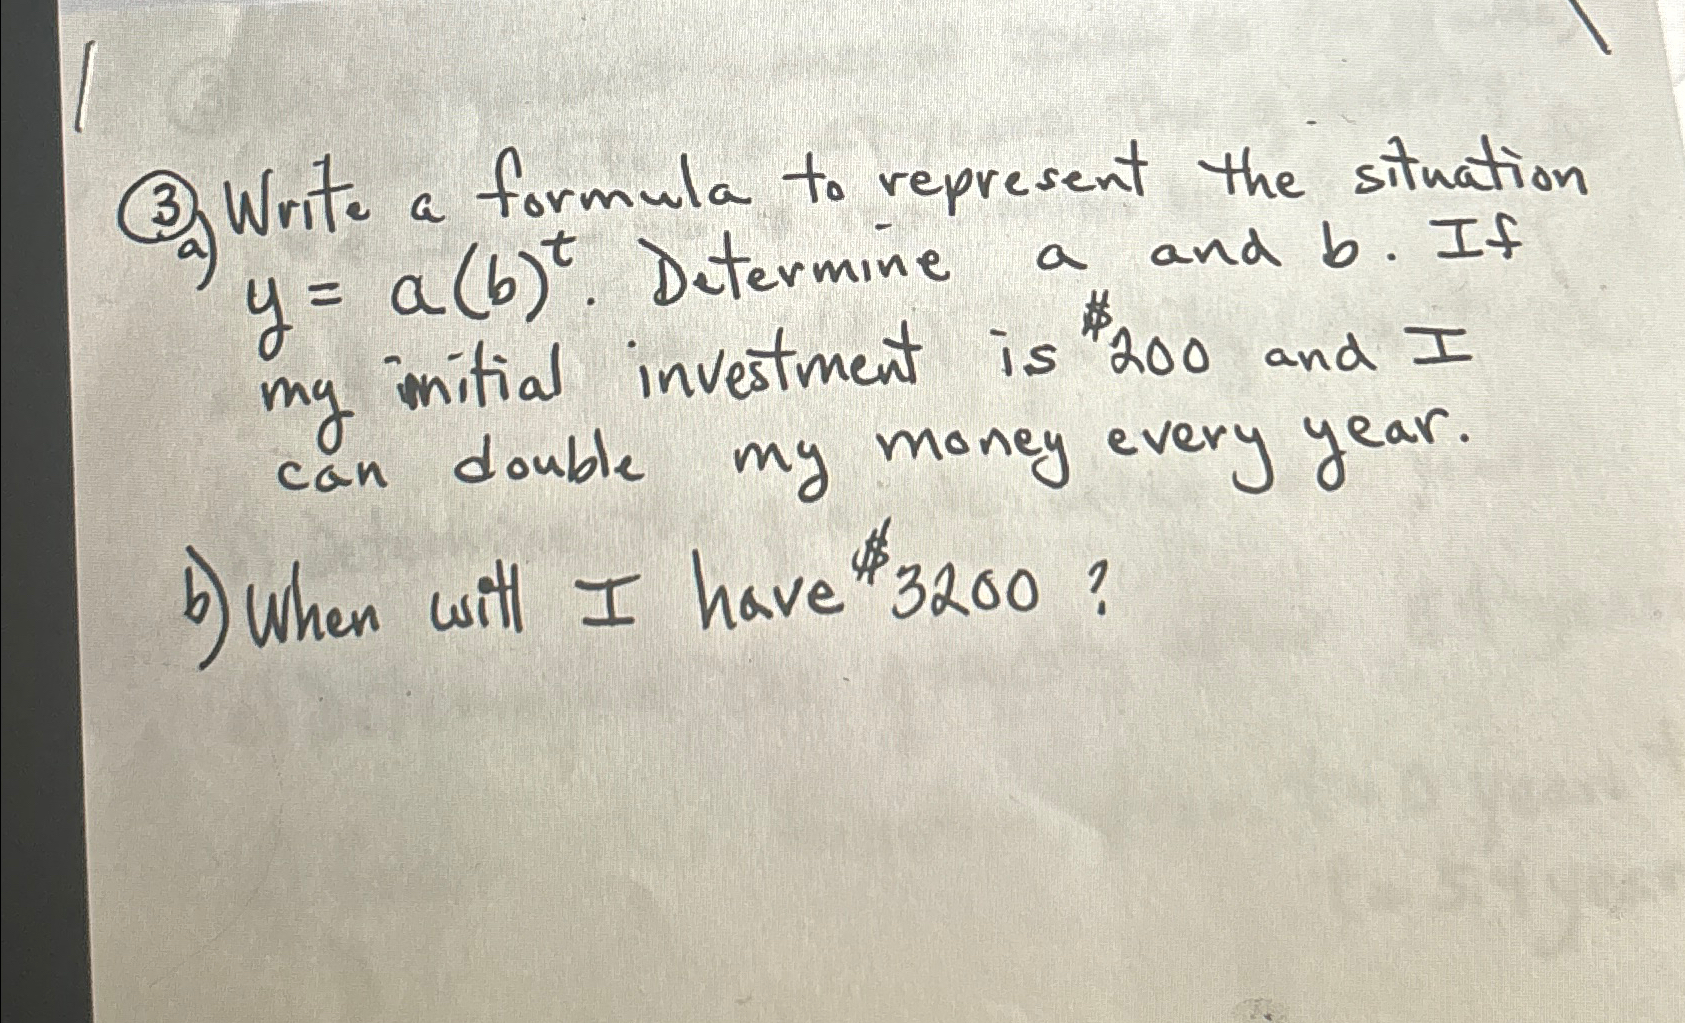 ③ a) Write a formula to represent the situation
y = a(b)^t. Determine a and b. If
my initial investment is $200 and I
can double my money every year.
b) When will I have $3200?